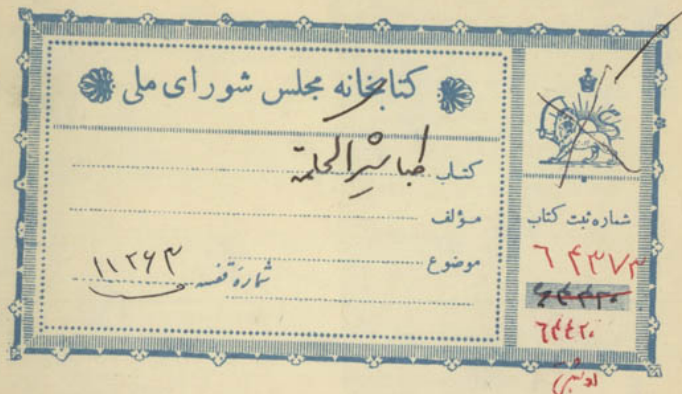 کتابخانه مجلس شورای ملی
کتاب طباشیر الحکمة
مؤلف
موضوع
شمارهٔ قفسه ۱۱۲۶۳
شماره ثبت کتاب
۶۴۳۷۳
۶۴۴۲۰